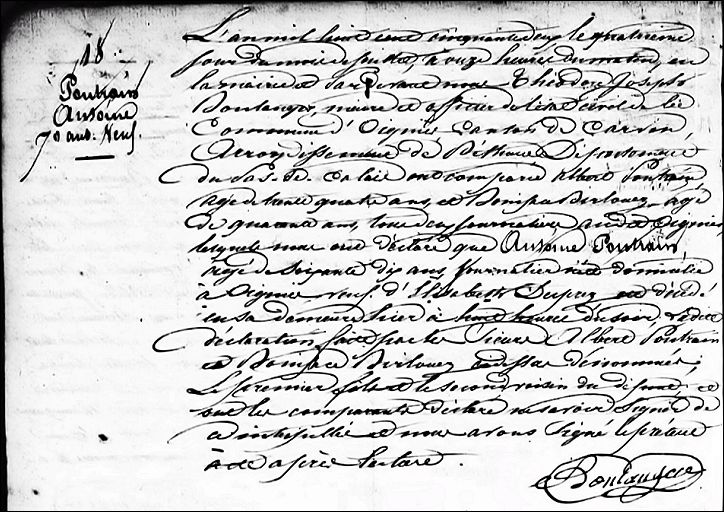 18
Pontrain
Antoine
70 ans. Veuf.
L'an mil huit cent cinquante deux le quatrieme
jour du mois de juillet, à onze heures du matin, en
la mairie et par devant nous Théodore Joseph
Boulanger, maire et officier de l'état civil de la
Commune d'Oignies Canton de Carvin,
Arrondissement de Béthune Département
du Pas-de-Calais ont comparu Albert Pontrain,
agé de trente quatre ans, et Boniface age
de quarante ans, tous deux journaliers aud. Oignies,
lesquels nous ont déclaré que Antoine Pontrain,
agé de Soixante dix ans, journalier né et domicilié
à Oignies veuf d'Elisabeth Duprez est décédé
en sa demeure hier à heures du soir, ladite
déclaration faite par les Sieurs Albert Pontrain
et Boniface cidessus dénommés;
Le premier fils et le second voisin du défunt, et
ont les comparants déclaré ne savoir Signer de
ce interpellés et nous avons Signé le présent
acte après lecture.
Boulanger